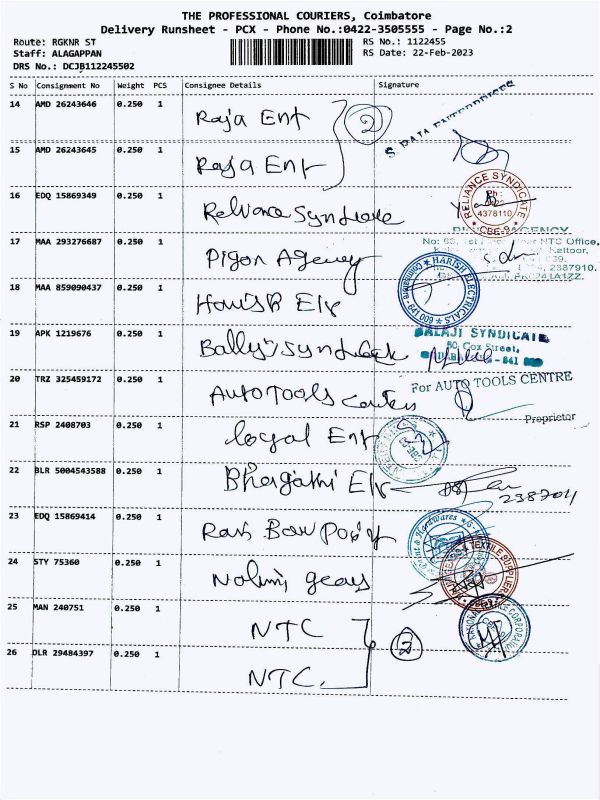 THE PROFESSIONAL COURIERS, Coimbatore
Delivery Runsheet - PCX - Phone No.:0422-3505555 - Page No.:2
Route: RGKNR ST
RS No.: 1122455
Staff: ALAGAPPAN
RS Date: 22-Feb-2023
DRS No.: DCJB112245502
S No Consignment No Weight PCS Consignee Details Signature
14 AMD 26243646 0.250 1 Raja Ent 2
S. RAJA ENTERPRISES
15 AMD 26243645 0.250 1 Raja Ent
16 EDQ 15869349 0.250 1 Reliance Syndicate
RELIANCE SYNDICATE
4378110
CBE-9
17 MAA 293276687 0.250 1 Pigon Agency
AGENCY
NTC Office,
2387910.
18 MAA 859090437 0.250 1 Harish Ele
HARISH ELECTRICALS
COIMBATORE-641 009
19 APK 1219676 0.250 1
BALAJI SYNDICATE
50, Cox Street,
20 TRZ 325459172 0.250 1 Auto Tools
For AUTO TOOLS CENTRE
Proprietor
21 RSP 2408703 0.250 1 loyal Ent
22 BLR 5004543588 0.250 1
23 EDQ 15869414 0.250 1
24 STY 75360 0.250 1
TEXTILE SUPPLIER
25 MAN 240751 0.250 1 NTC
2
26 DLR 29484397 0.250 1 NTC.